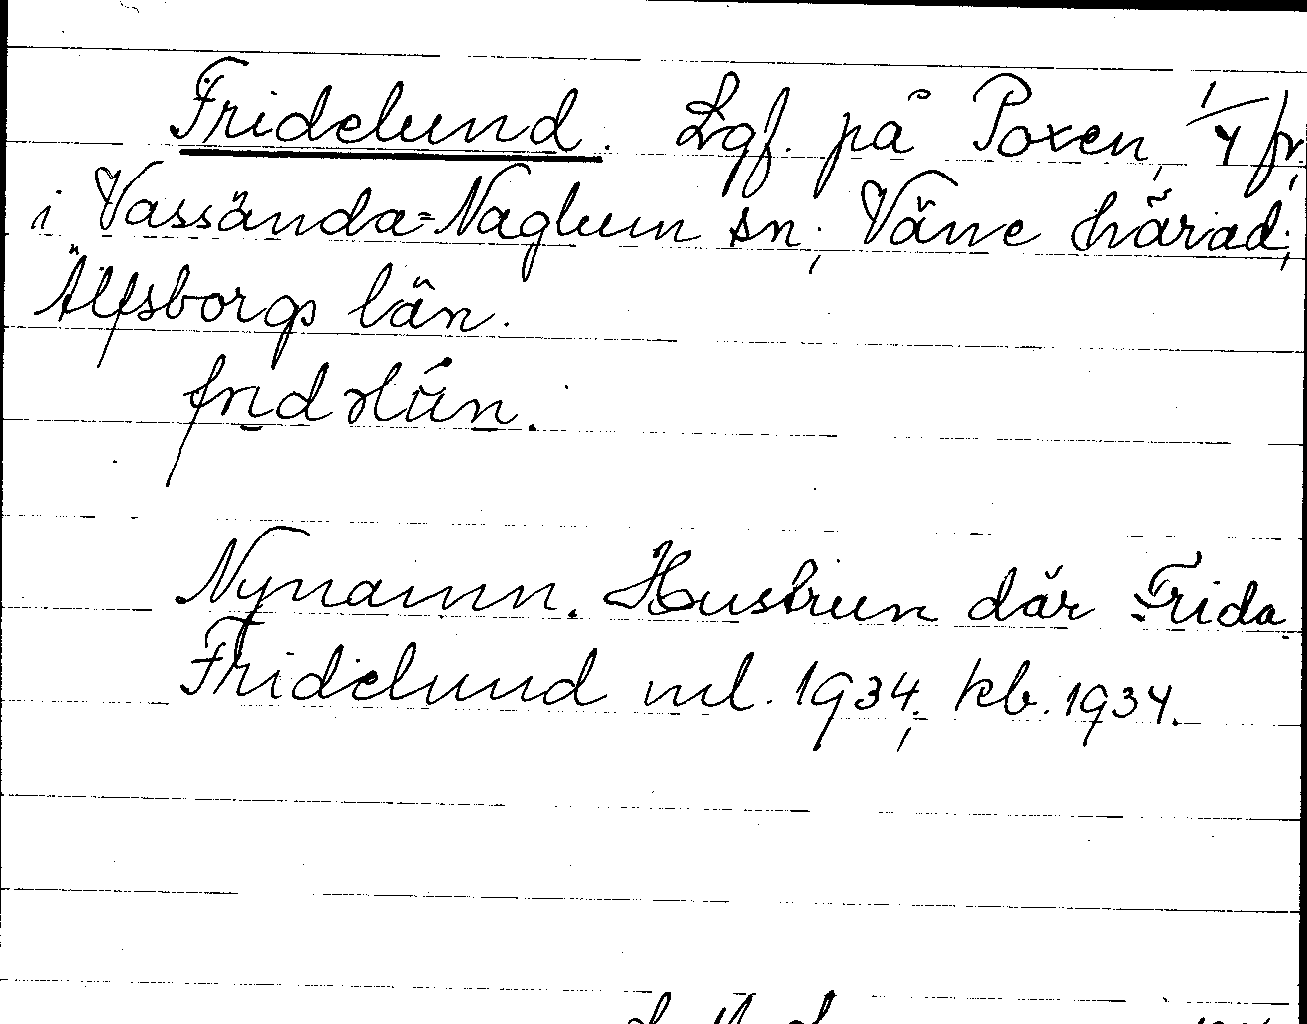 Fridelund. Lgf. på Poxen, 1/4 fr,
i Vassända=Naglum sn; Väne härad;
Älfsborgs län.
Nynamn. Hustrun där Frida
Fridelund ml. 1934; kb. 1934.